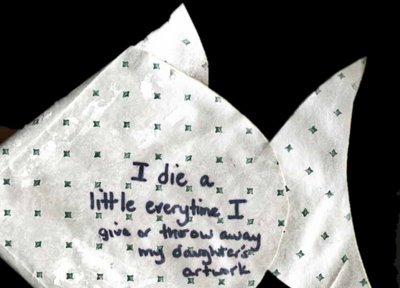 I die a
little everytime I
give or throw away
my daughter's
artwork